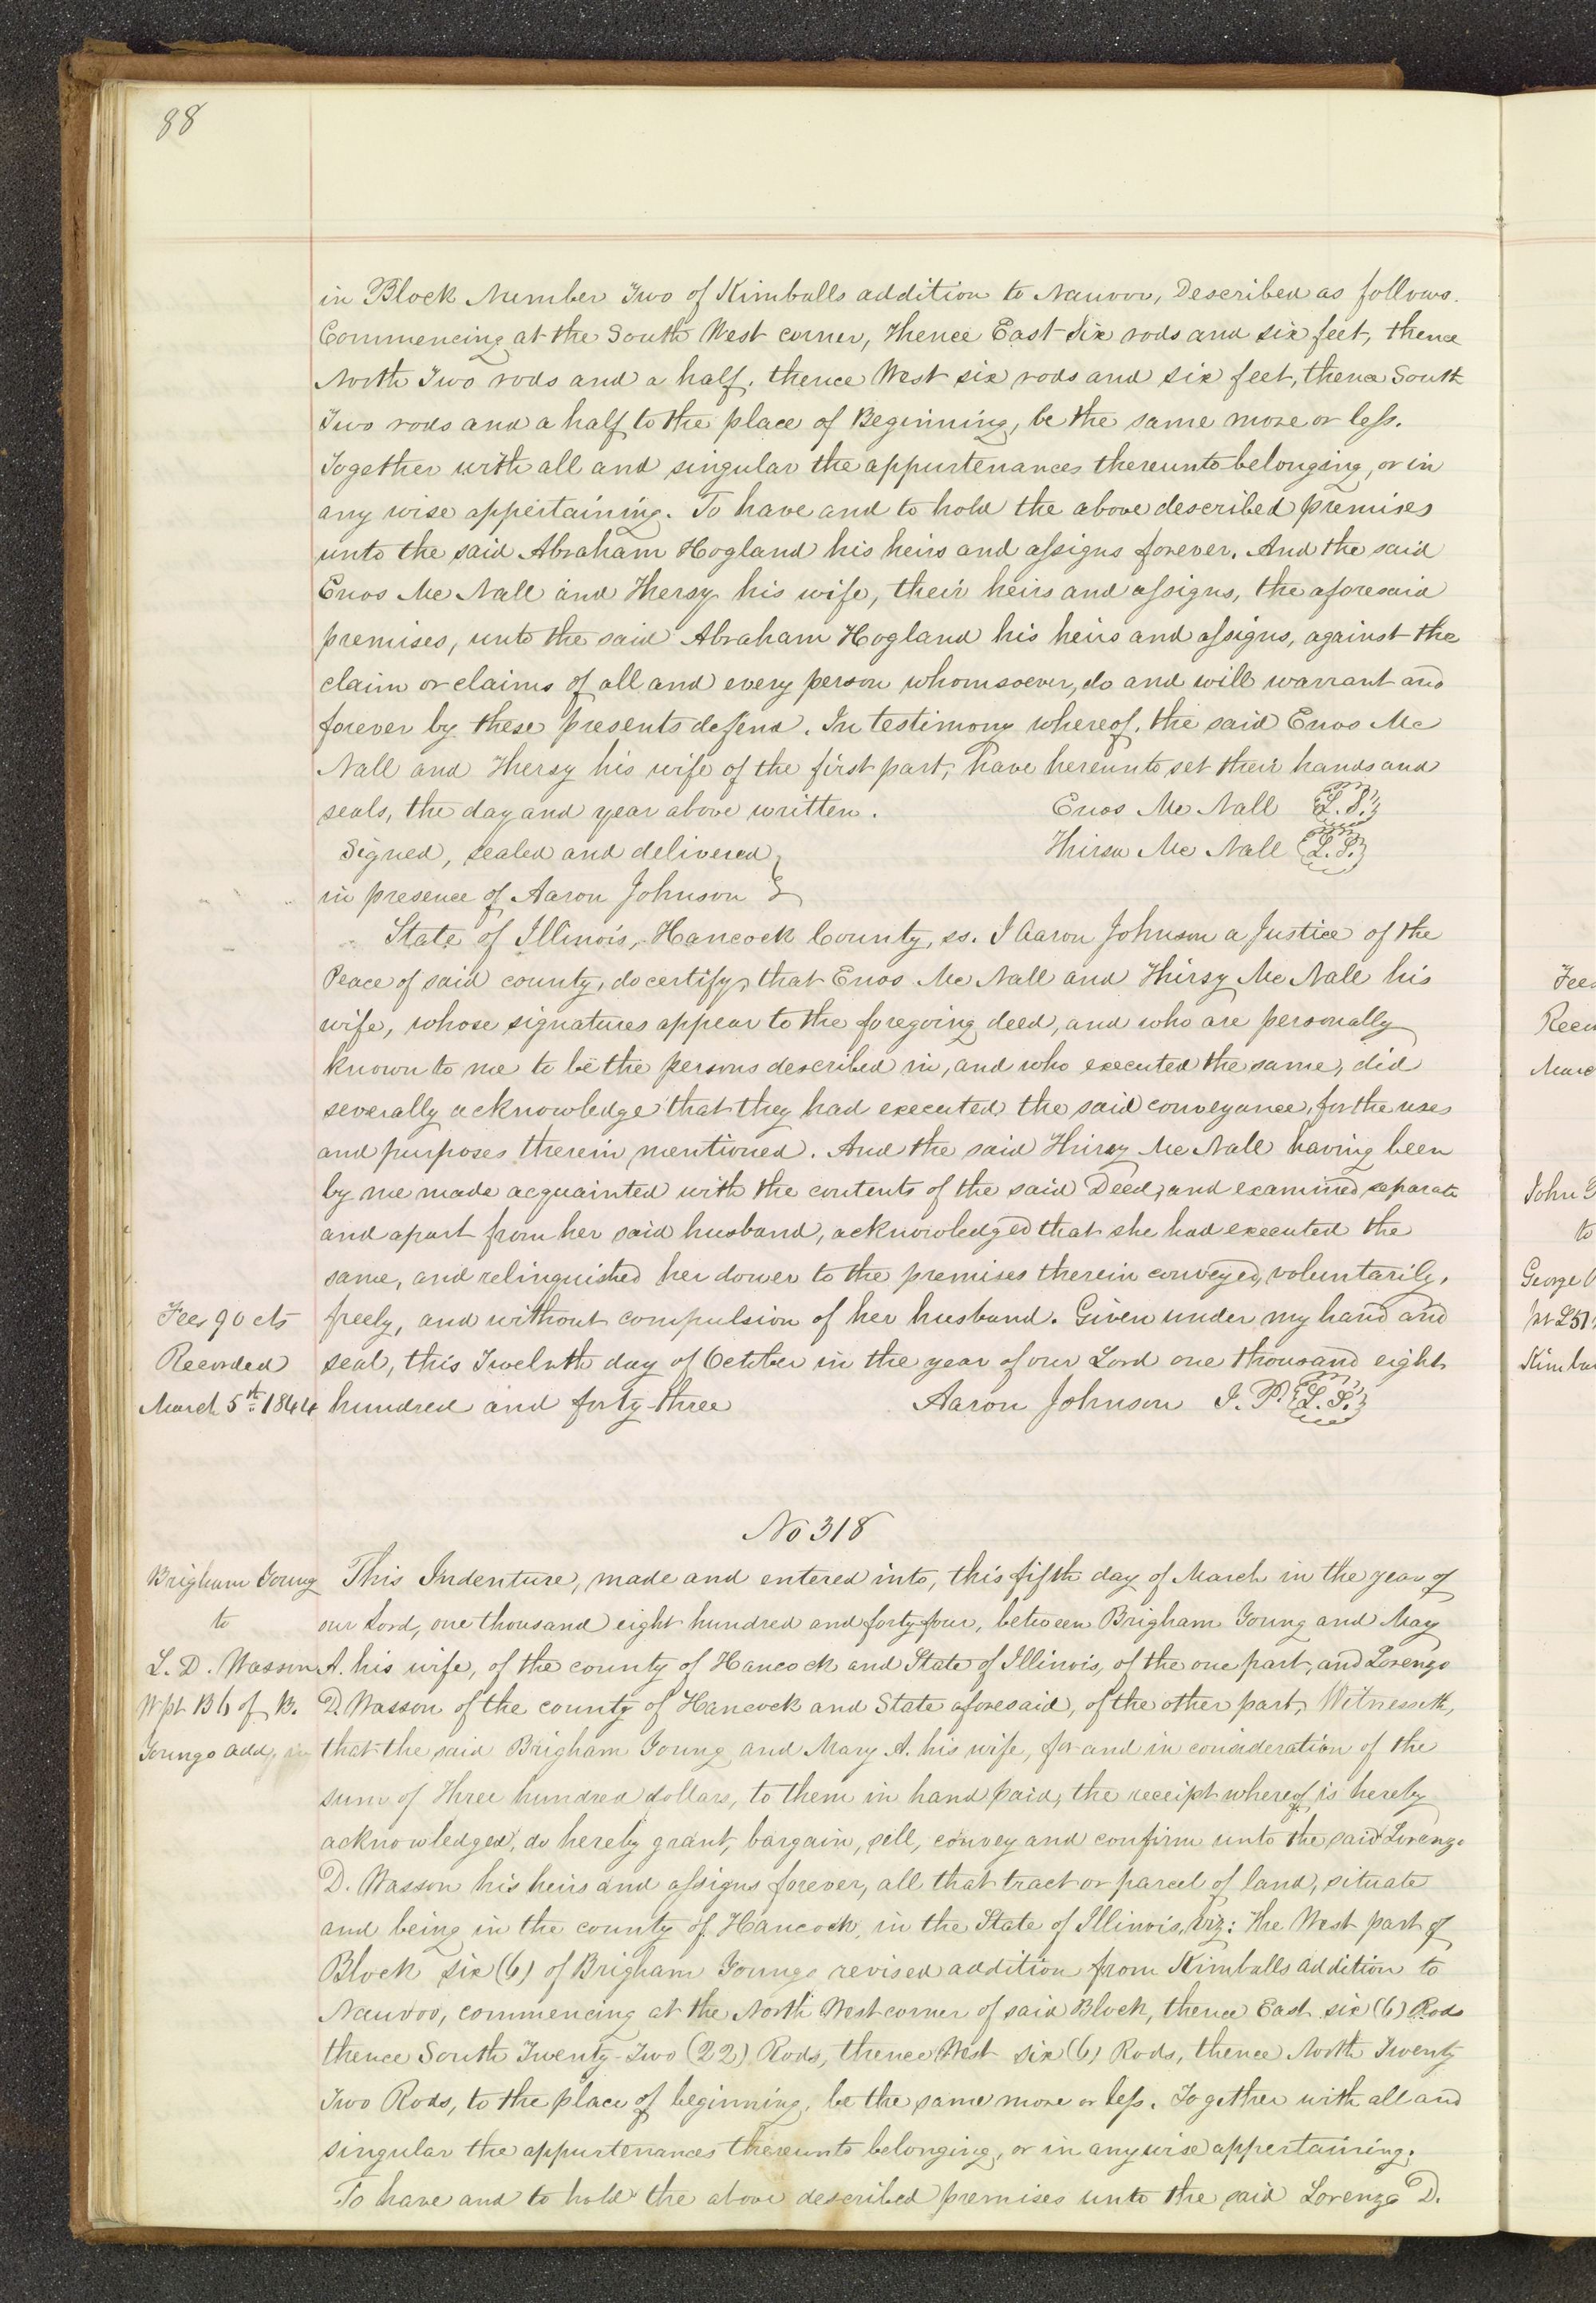 88
in Block Number Two of Kimballs addition to Nauvoo, Described as follows.
Commencing at the South West corner, thence East Six rods and six feet, thence
North Two rods and a half, thence West six rods and six feet, thence South
Two rods and a half to the place of Beginning, be the same more or less.
Together with all and singular the appurtenances thereunto belonging, or in
any wise appertaining. To have and to hold the above described premises
unto the said Abraham Hogland his heirs and assigns forever. And the said
Enos Mc Nall and Thersy his wife, their heirs and assigns, the aforesaid
premises, unto the said Abraham Hogland his heirs and assigns, against the
claim or claims of all and every person whomsoever, do and will warrant and
forever by these presents defend. In testimony whereof, the said Enos Mc
Nall and Thersy his wife of the first part, have hereunto set their hands and
seals, the day and year above written. Enos Mc Nall L.S.
Signed, sealed and delivered Thirsa Mc Nall L.S.
in presence of Aaron Johnson
State of Illinois, Hancock County, ss. I Aaron Johnson a Justice of the
Peace of said county, do certify, that Enos Mc Nall and Thirsy Mc Nall his
wife, whose signatures appear to the foregoing deed, and who are personally
known to me to be the persons described in, and who executed the same, did
severally acknowledge that they had executed the said conveyance, for the uses
and purposes therein mentioned. And the said Thirsy Mc Nall having been
by me made acquainted with the contents of the said Deed, and examined separate
and apart from her said husband, acknowledged that she had executed the
same, and relinquished her dower to the premises therein conveyed, voluntarily,
freely, and without compulsion of her husband. Given under my hand and
seal, this Twelvth day of October in the year of our Lord one thousand eight
hundred and forty-three Aaron Johnson J. P. L.S.
Fees 90 cts
Recorded
March 5th 1844
No 318
Brigham Young
to
L. D. Wasson
W pt B 6 of B.
Youngs add,
This Indenture, made and entered into, this fifth day of March in the year of
our Lord, one thousand eight hundred and forty-four, between Brigham Young and Mary
A. his wife, of the county of Hancock and State of Illinois, of the one part, and Lorenzo
D. Wasson of the county of Hancock and State aforesaid, of the other part, Witnesseth,
that the said Brigham Young and Mary A. his wife, for and in consideration of the
sum of Three hundred dollars, to them in hand paid, the receipt whereof is hereby
acknowledged, do hereby grant, bargain, sell, convey and confirm unto the said Lorenzo
D. Wasson his heirs and assigns forever, all that tract or parcel of land, situate
and being in the county of Hancock, in the State of Illinois, viz: The West part of
Block six (6) of Brigham Youngs revised addition from Kimballs addition to
Nauvoo, commencing at the North West corner of said Block, thence East six (6) Rods
thence South Twenty-Two (22) Rods, thence West six (6) Rods, thence North Twenty
Two Rods, to the place of beginning, be the same more or less. Together with all and
singular the appurtenances thereunto belonging, or in anywise appertaining.
To have and to hold the above described premises unto the said Lorenzo D.
John
to
George